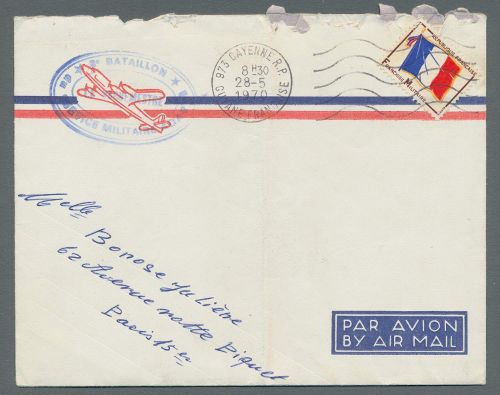 2e BATAILLON
SERVICE MILITAIRE
973 CAYENNE R.P.
8H30
28-5
1970
GUYANE FRANCAISE
REPUBLIQUE FRANCAISE
FRANCHISE MILITAIRE
Melle
Bonose Julière
62 Avenue motte Piquet
Paris 15e
PAR AVION
BY AIR MAIL